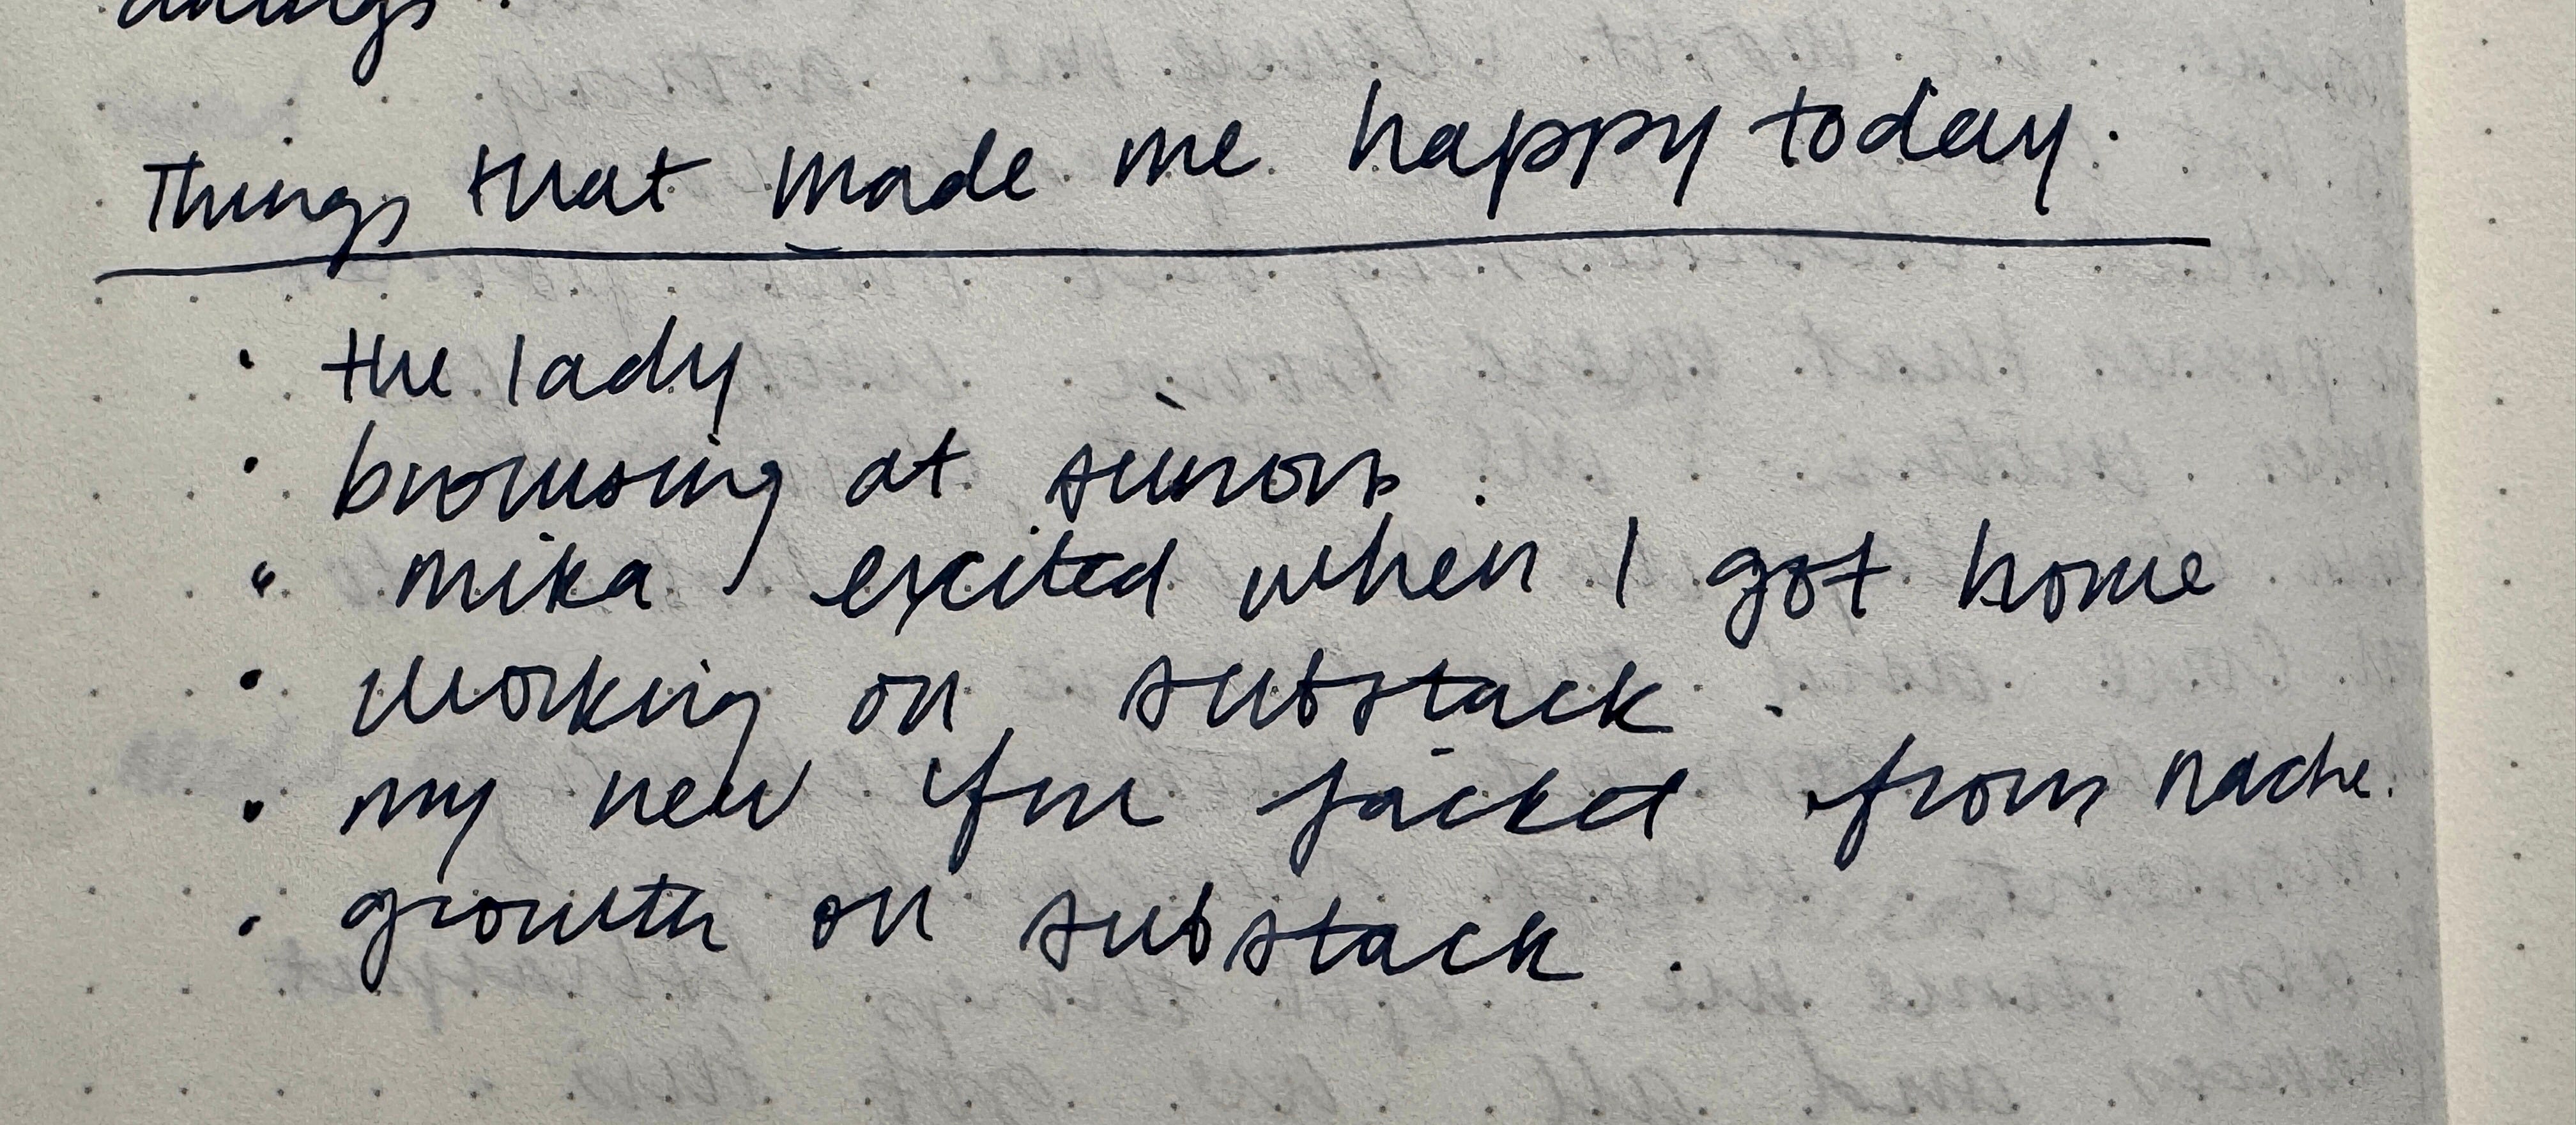 Things that made me happy today.
• the lady
• browsing at simons
• mika excited when I got home
• working on substack.
• my new fur jacket from
• growth on substack.